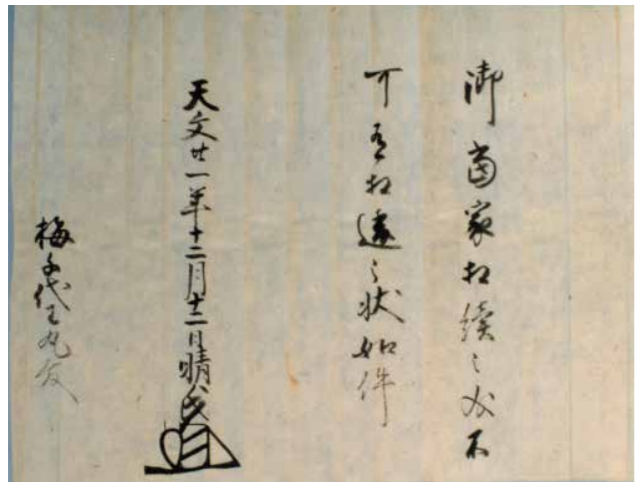 御當家相續之不
可有相違之状如件
天文廿一年十二月十二日晴氏
梅千代王丸殿